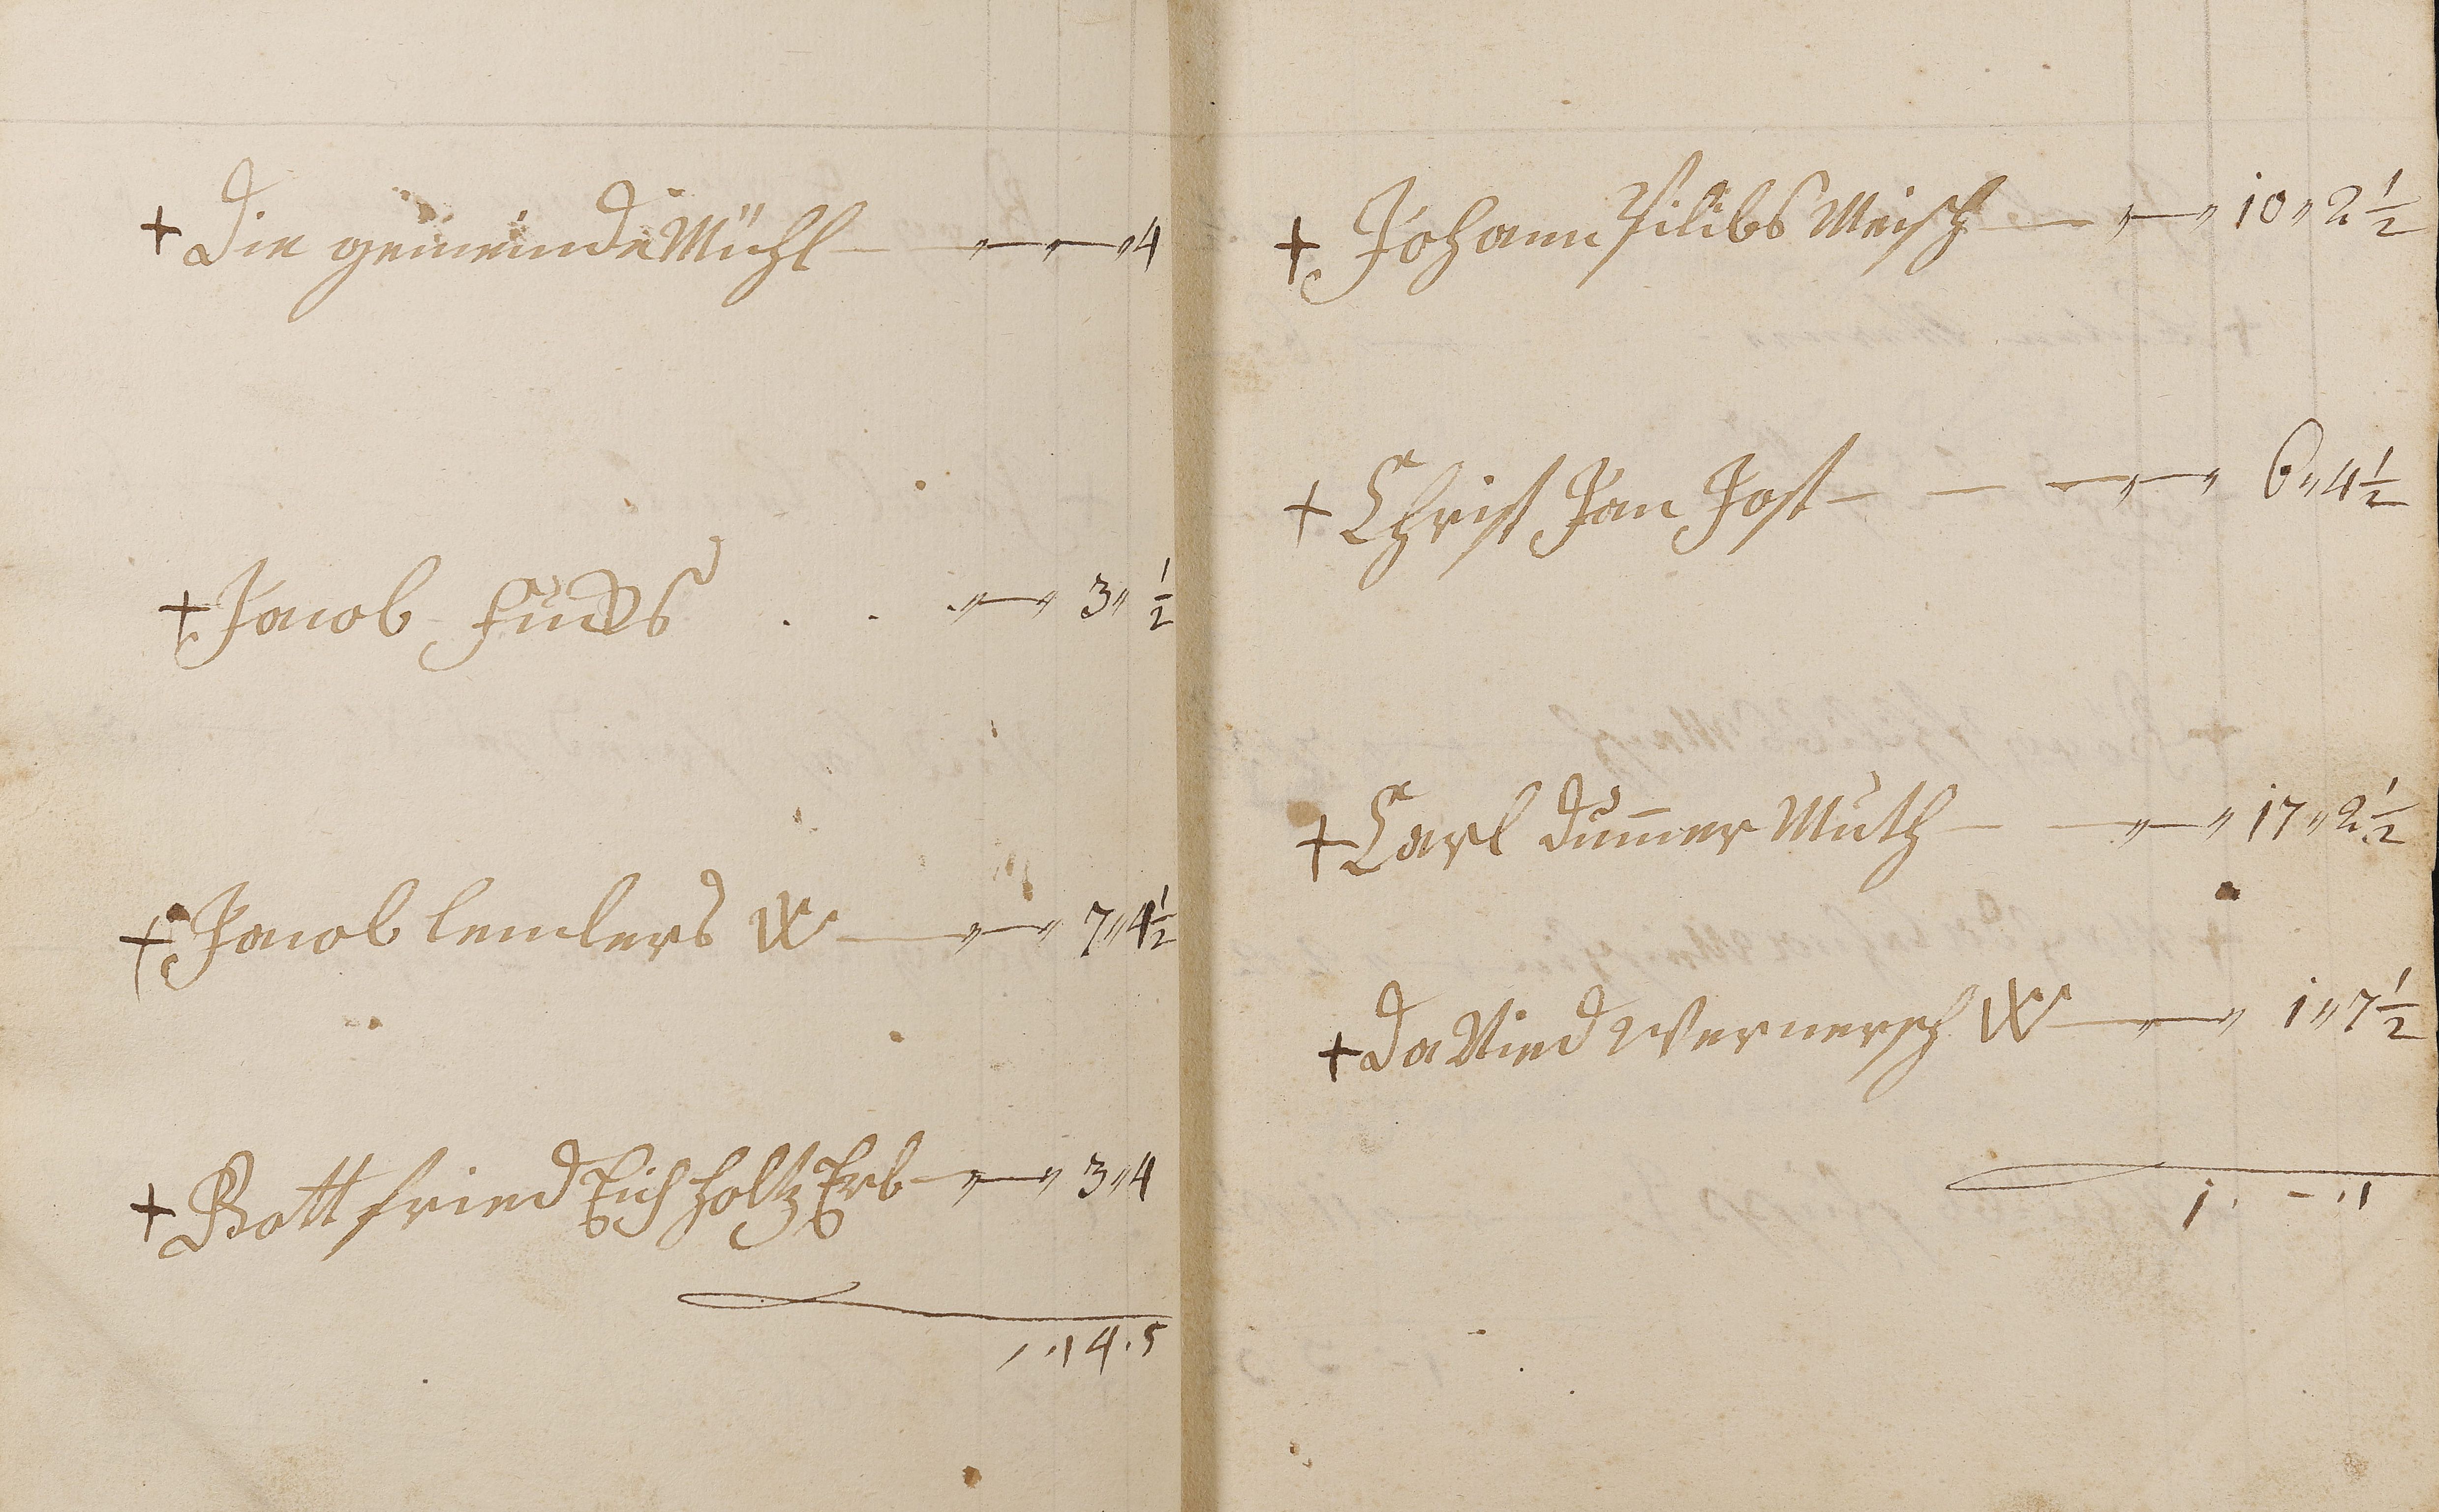 + Die gemeinde Mühl — „—„—„4
+ Jacob Fucks . . „—„ 3„ ½
+ Jacob lemlers W — „—„ 7„4½
+ Gottfried Eichholtz Erb — „—„ 3„4
14.5
+ Johann Filibs Meisch — „—„ 10„2½
+ Christ Jan Jost — — — „—„ 6„4½
+ Carl dum̄er Muth — — „—„ 17„2½
+ daVied Wernersch W — „—„ 1„7½
1. – .1